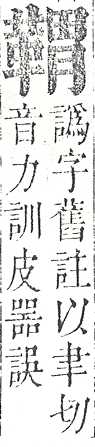 譌字舊註以聿切
音力訓皮器誤